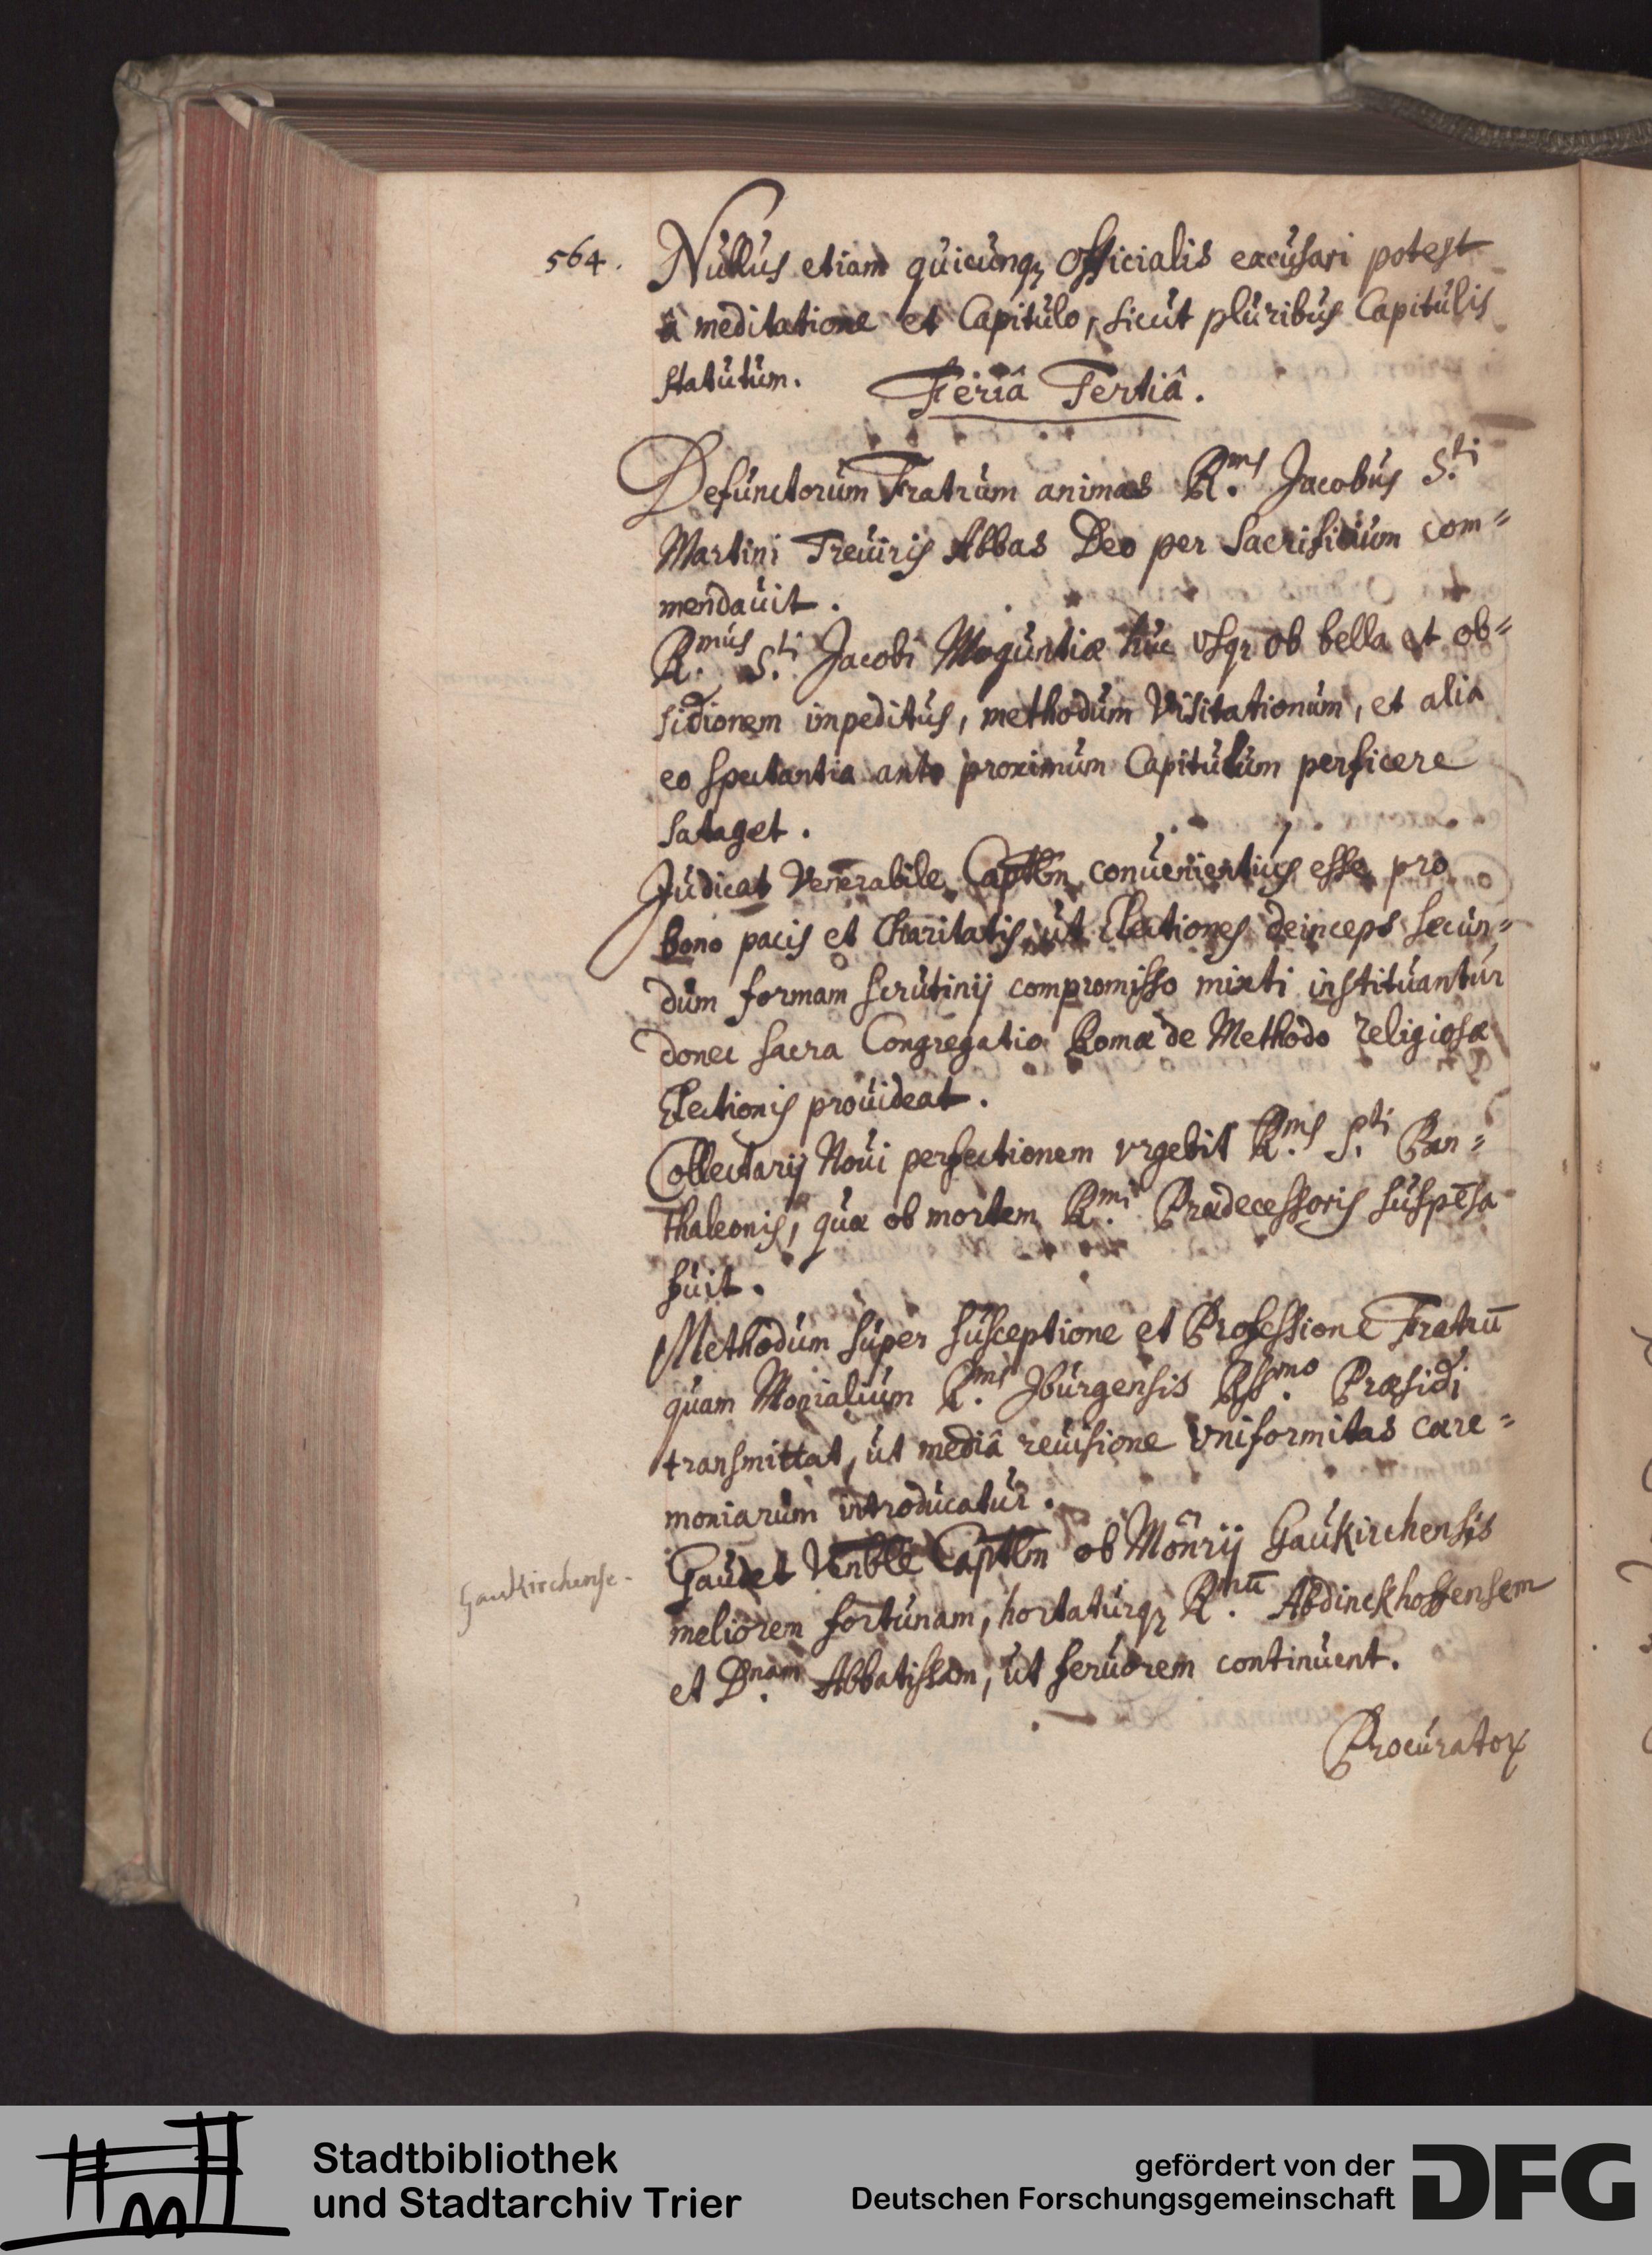 564.
Nullus etiam quicunqꝫ Officialis excusari potest
à meditatione et Capitulo, sicut pluribus Capitulis
statutum.
Feriâ Tertiâ.
Defunctorum Fratrum animas R.ms Jacobus S.ti
Martini Treuiris Abbas Deo per Sacrificium com=
mendauit.
R.mus S.ti Jacobi Moguntiæ huc vsqꝫ ob bella et ob=
sidionem impeditus, methodum Visitationum, et alia
eo spectantia ante proximum Capitulum perficere
sataget.
Judicat Venerabile Captlm conuenientius esse pro
bono pacis et Charitatis, ut Electiones deinceps secun=
dum formam scrutinij compromisso mixti instituantur
donec sacra Congregatio Romæ de Methodo religiosæ
Electionis prouideat.
Collectarij Noui perfectionem vrgebit R.ms S.ti Pan=
thaleonis, quæ ob mortem R.mi Prædecessoris suspēsa
fuit.
Methodum super susceptione et Professione Fratrū
quam Monialium R.ms Jburgensis Rss.mo Præsidi
transmittat, ut mediâ reuisione vniformitas cære=
moniarum introducatur.
Gaudet Venble Captlm ob Mônrij Gaukirchensis
Gaukirchense.
meliorem fortunam, hortaturqꝫ R.mū Abdinckhoffensem
et D.nam Abbatissam, ut feruorem continuent.
Procurator
Stadtbibliothek
und Stadtarchiv Trier
gefördert von der
Deutschen Forschungsgemeinschaft
DFG